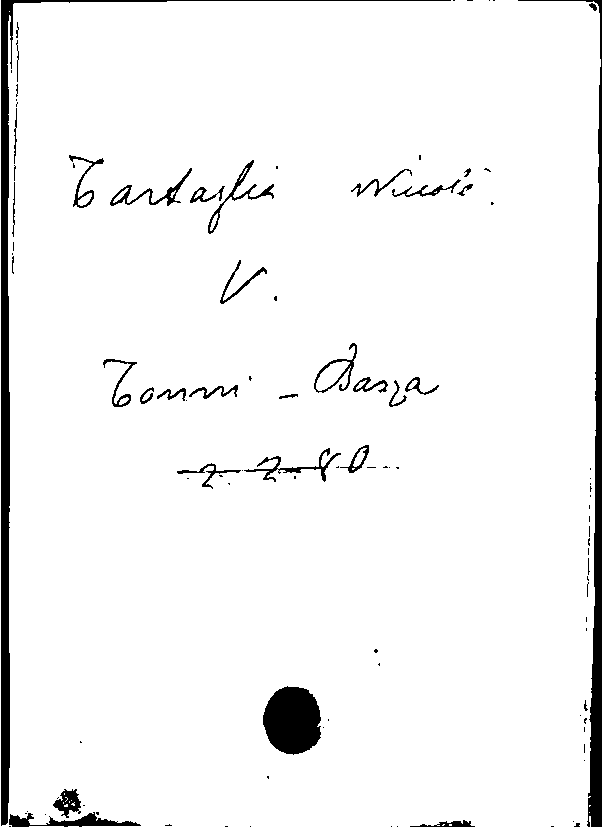 Tartaglia Nicolò.
V.
Tonni - Bazza
2.2.80